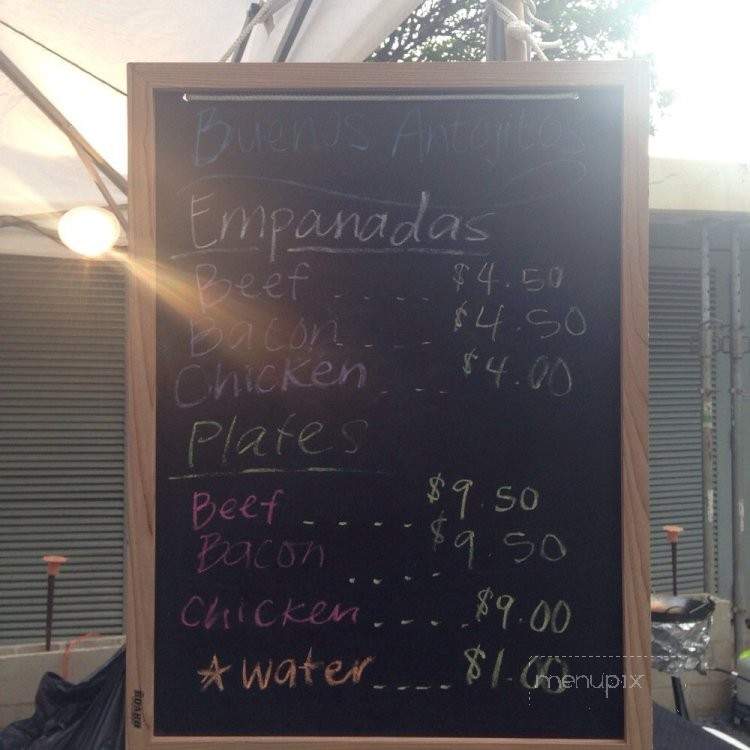 Buenos Antojitos
Empanadas
Beef ---- $4.50
Bacon ---- $4.50
Chicken --- $4.00
Plates
Beef ---- $9.50
Bacon ---- $9.50
Chicken ---- $9.00
☆ water ---- $1.00
menupix
BOARD